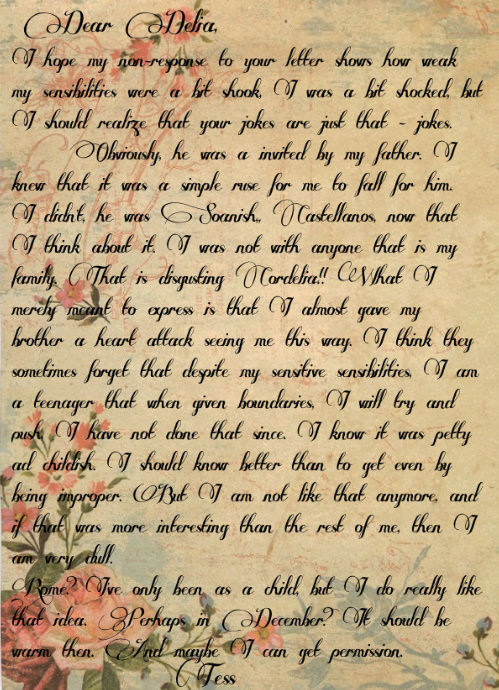 Dear Delia,
I hope my non-response to your letter shows how weak
my sensibilities were a bit shook, I was a bit shocked, but
I should realize that your jokes are just that - jokes.
Obviously, he was a invited by my father. I
knew that it was a simple ruse for me to fall for him.
I didn't, he was Soanish,, Castellanos, now that
I think about it. I was not with anyone that is my
family. That is disgusting Cordelia!! What I
merely meant to express is that I almost gave my
brother a heart attack seeing me this way. I think they
sometimes forget that despite my sensitive sensibilities, I am
a teenager that when given boundaries, I will try and
push. I have not done that since. I know it was petty
ad childish. I should know better than to get even by
being improper. But I am not like that anymore, and
if that was more interesting than the rest of me, then I
am very dull.
Rome? I've only been as a child, but I do really like
that idea. Perhaps in December? It should be
warm then. And maybe I can get permission.
Tess